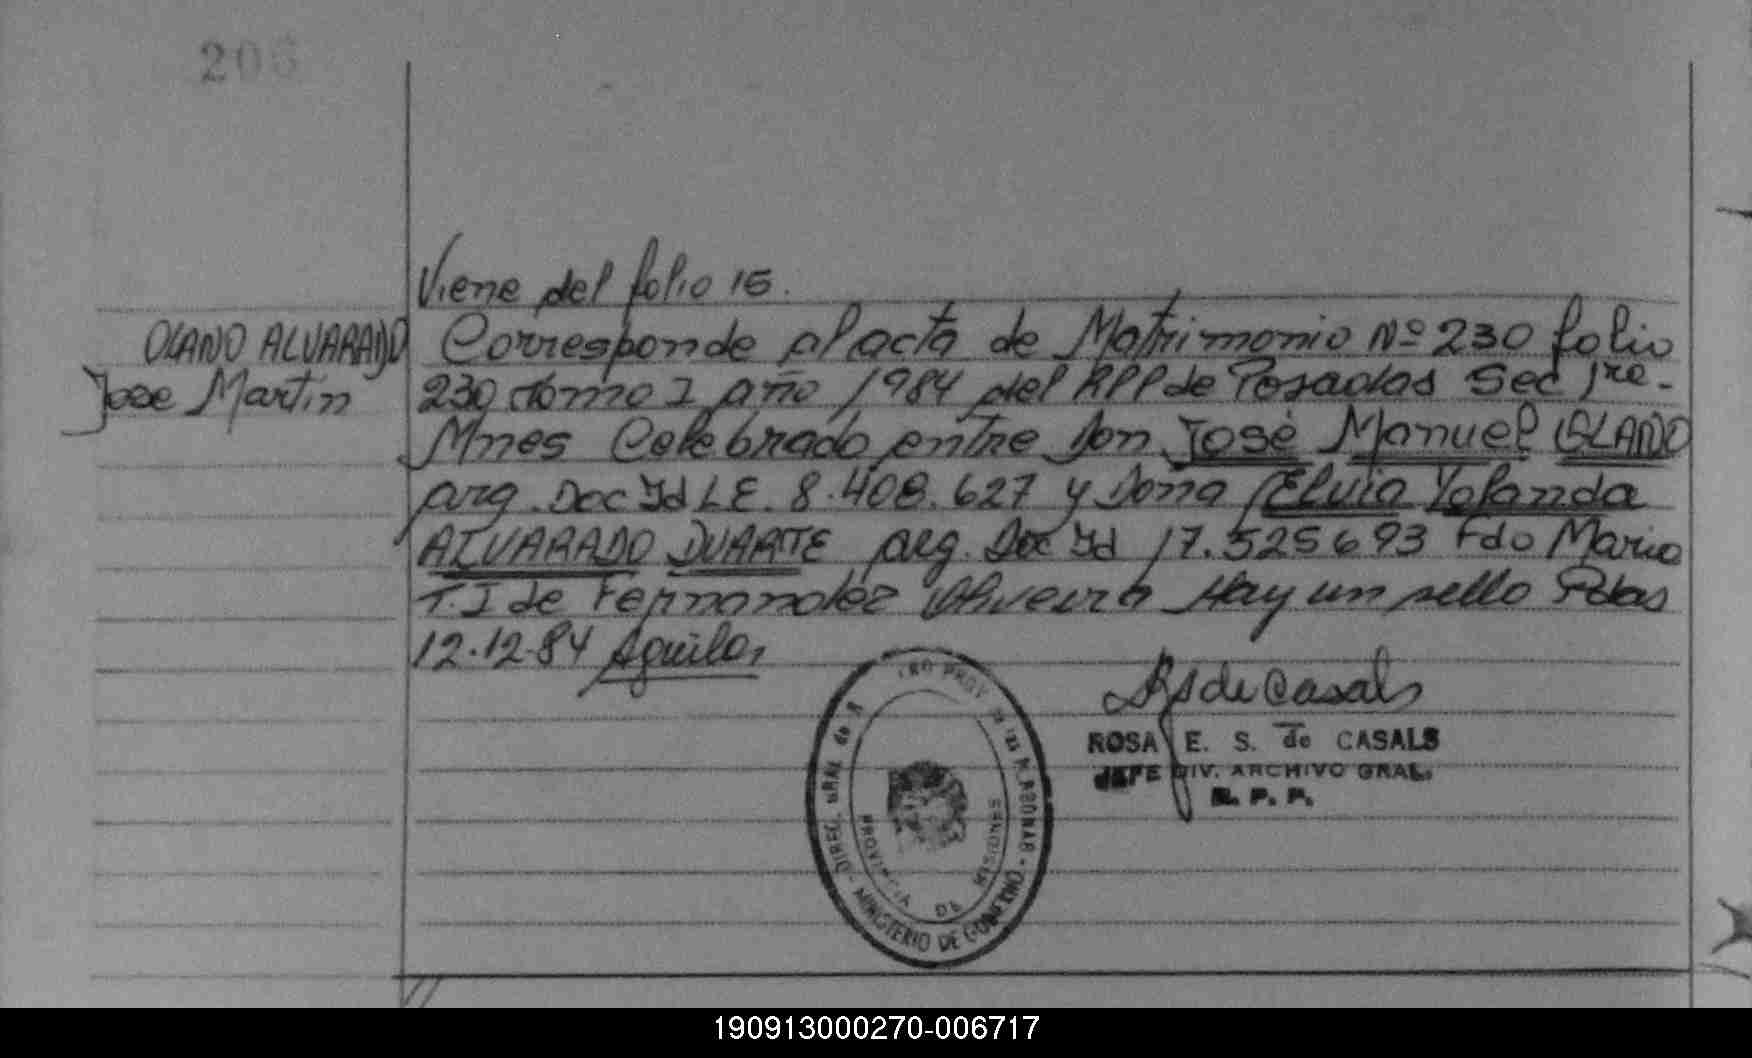 206
Viene del folio 15.
OLANO ALVARADO
Jose Martin
Corresponde al acta de Matrimonio Nº 230 folio
230 tomo I año 1984 del RPP de Posadas Sec 1ra-
Mnes Celebrado entre Don José Manuel OLANO
arg. Doc Id L.E. 8.408.627 y Dona Elvia Yolanda
ALVARADO DUARTE arg. Doc Id 17.525693 Fdo Mario
T. I de Fernandez Oliveira Hay un sello Pdas
12.12.84 Aguilar
RS de Casals
ROSA E. S. de CASALS
JEFE DIV. ARCHIVO GRAL.
R. P. P.
DIREC. GRAL de PROV PERSONAS - MINISTERIO DE GOBIERNO
PROVINCIA DE MISIONES
190913000270-006717